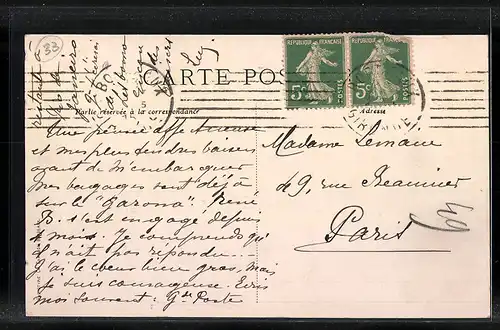 33
restante à
Rio de
Janeiro
Luy
CARTE POS
REPUBLIQUE FRANÇAISE
5c
POSTES
REPUBLIQUE FRANÇAISE
5c
POSTES
Partie réservée à la correspondance
Adresse
Une pensée affectueuse
et mes plus tendres baisers
avant de m'embarquer
Mes bagages sont déjà
sur le "Garona". René
B. s'est engagé depuis
mois. Je comprends qu'il
n'ait pas répondu...
J'ai le cœur bien gros, mais
je suis courageuse. Ecris
moi souvent: Gde Poste
Madame Lemane
9, rue Beaunier
Paris